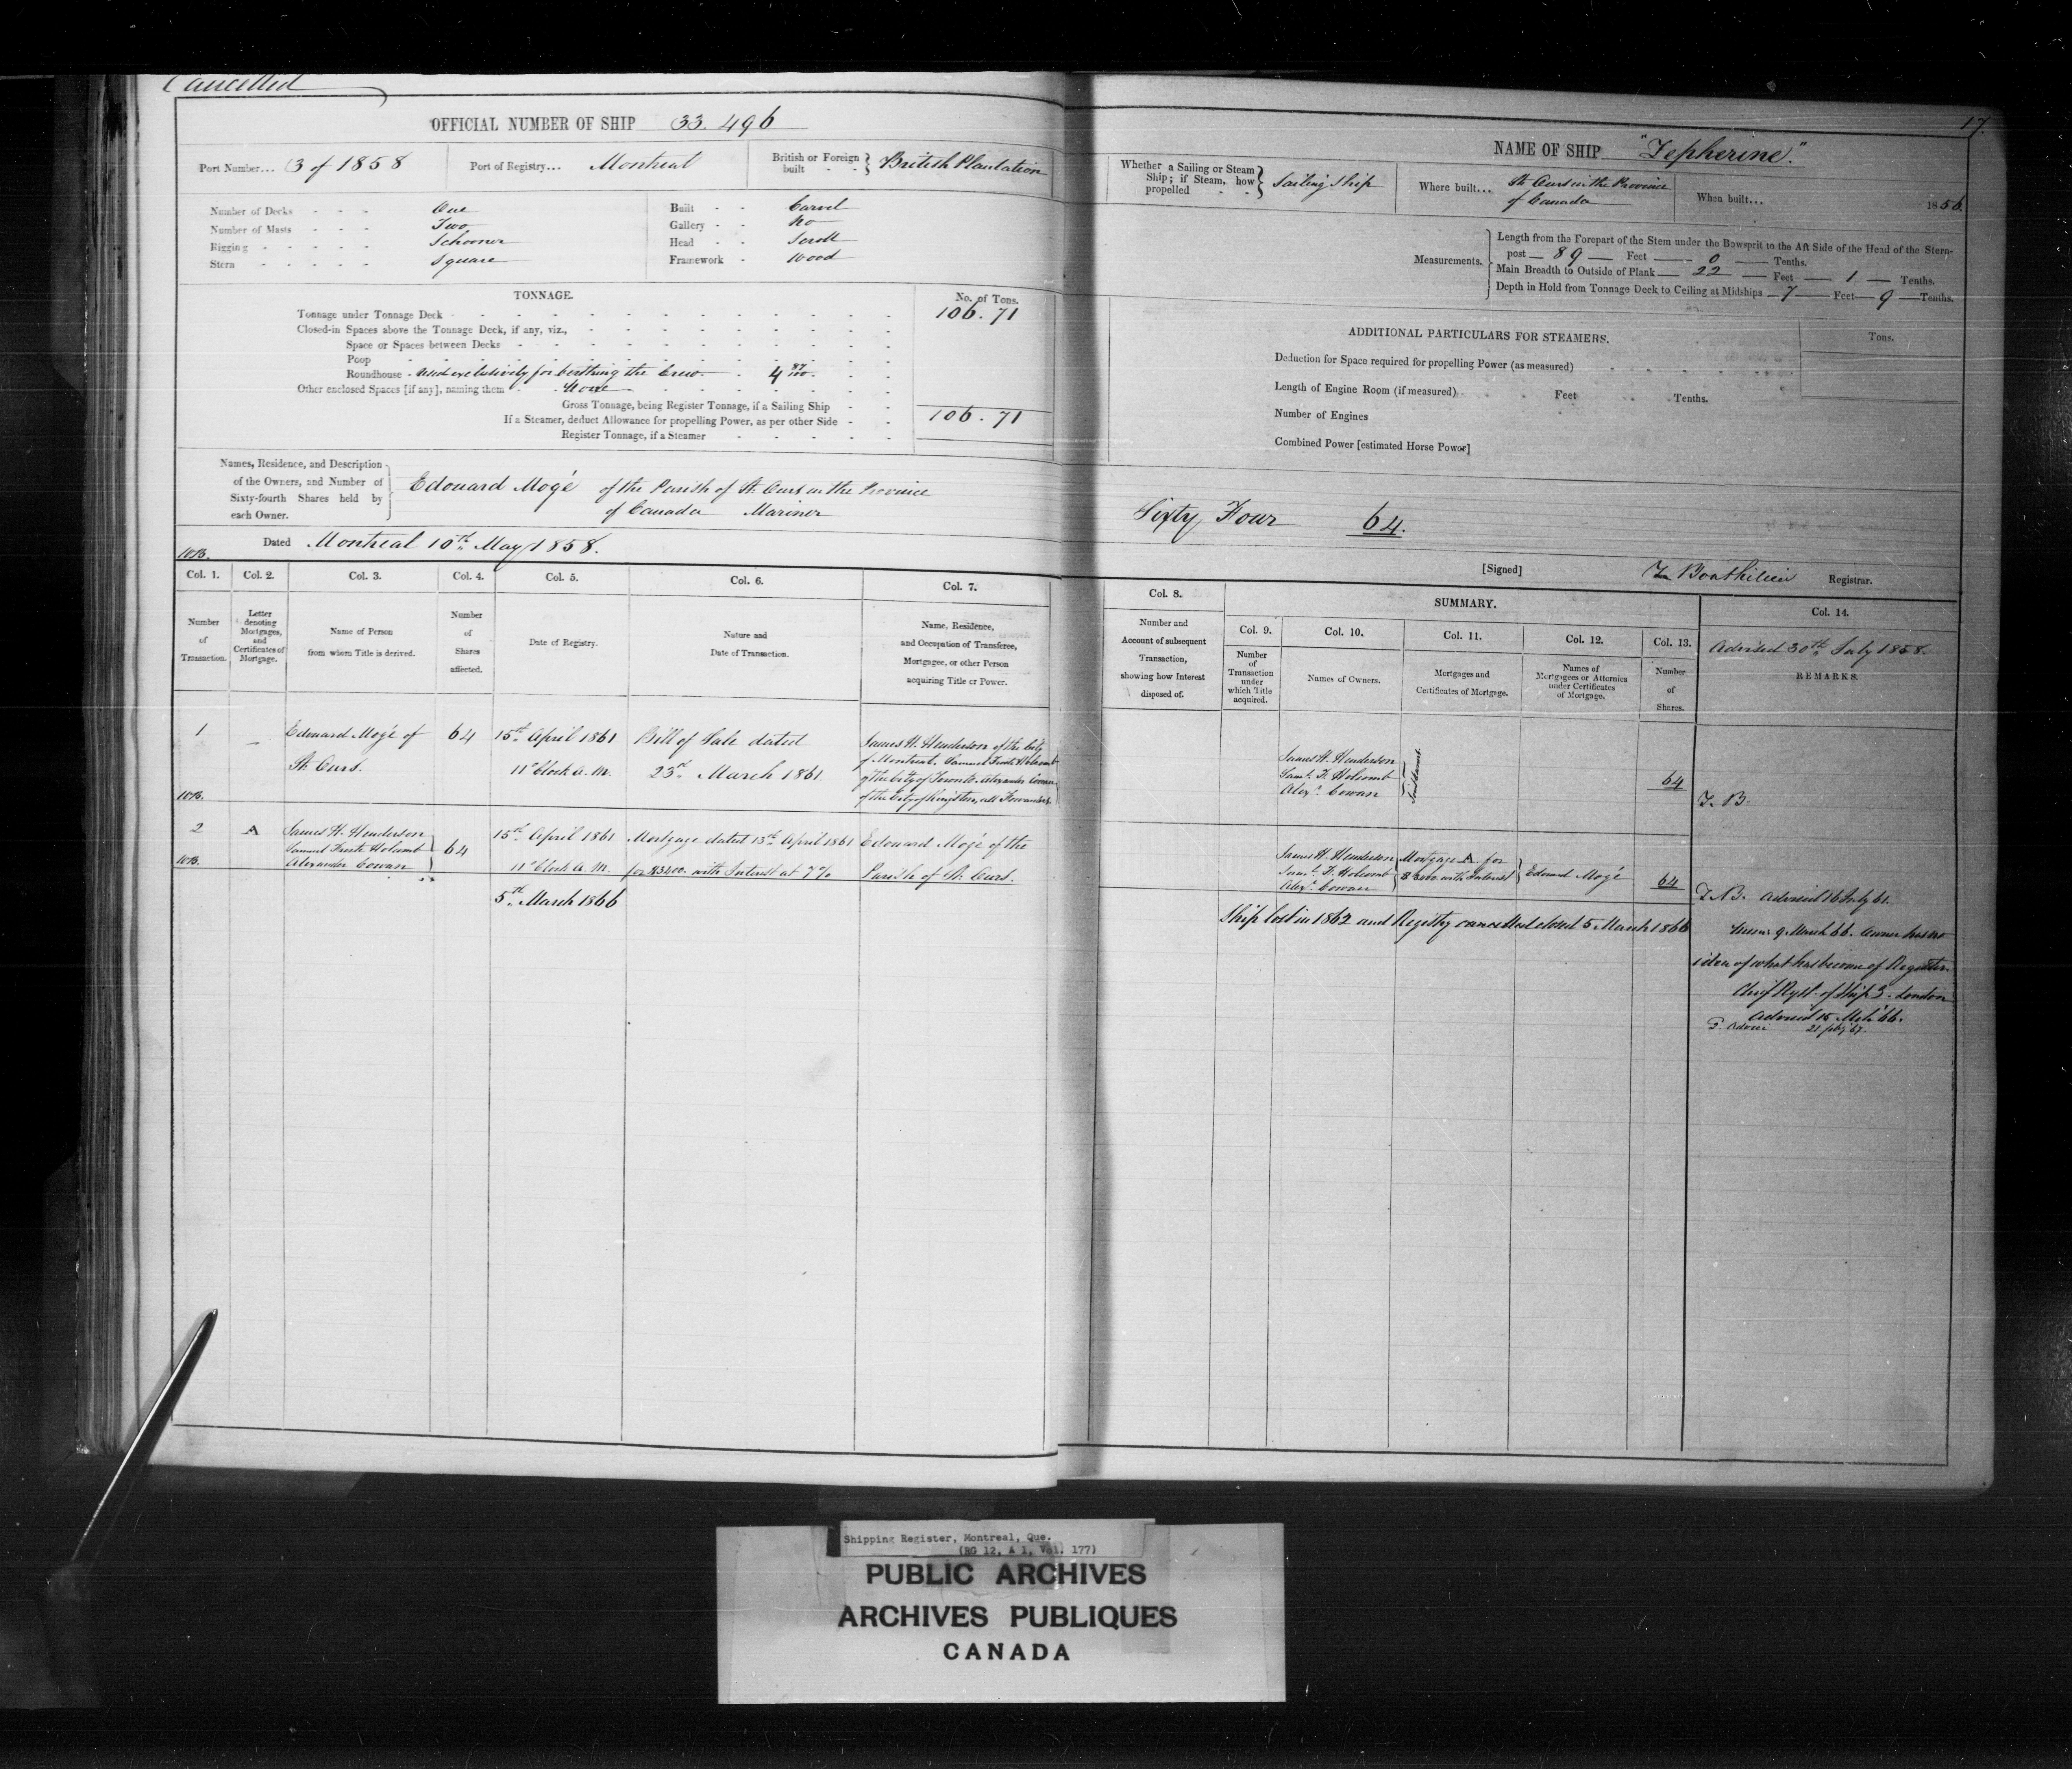 Cancelled
17.
OFFICIAL NUMBER OF SHIP 33.496
Port Number... 3 of 1858
Port of Registry... Montreal
British or Foreign built - - } British Plantation
Number of Decks - - - One
Number of Masts - - - Two
Rigging - - - - Schooner
Stern - - - - Square
Built - - Carvel
Gallery - - No
Head - - Scroll
Framework - Wood
TONNAGE.
No. of Tons.
Tonnage under Tonnage Deck 106.71
Closed-in Spaces above the Tonnage Deck, if any, viz.,
Space or Spaces between Decks
Poop
Roundhouse - Used exclusively for berthing the Crew. 4 87/100.
Other enclosed Spaces [if any], naming them - None
Gross Tonnage, being Register Tonnage, if a Sailing Ship
106.71
If a Steamer, deduct Allowance for propelling Power, as per other Side
Register Tonnage, if a Steamer
Names, Residence, and Description
of the Owners, and Number of
Sixty-fourth Shares held by
each Owner.
Edouard Mogé of the Parish of St. Ours in the Province
of Canada Mariner
Dated Montreal 10th May 1858.
NAME OF SHIP "Zepherine."
Whether a Sailing or Steam
Ship; if Steam, how
propelled - -
Sailing Ship
Where built... St. Ours in the Province
of Canada
When built... 1856.
Measurements.
Length from the Forepart of the Stem under the Bowsprit to the Aft Side of the Head of the Stern-
post 89 Feet 0 Tenths.
Main Breadth to Outside of Plank 22 Feet 1 Tenths.
Depth in Hold from Tonnage Deck to Ceiling at Midships 7 Feet 9 Tenths.
ADDITIONAL PARTICULARS FOR STEAMERS.
Tons.
Deduction for Space required for propelling Power (as measured)
Length of Engine Room (if measured) Feet Tenths.
Number of Engines
Combined Power [estimated Horse Power]
Sixty Four 64.
[Signed] Registrar.
Col. 1.
Number
of
Transaction.
Col. 2.
Letter
denoting
Mortgages,
and
Certificates of
Mortgage.
Col. 3.
Name of Person
from whom Title is derived.
Col. 4.
Number
of
Shares
affected.
Col. 5.
Date of Registry.
Col. 6.
Nature and
Date of Transaction.
Col. 7.
Name, Residence,
and Occupation of Transferee,
Mortgagee, or other Person
acquiring Title or Power.
Col. 8.
Number and
Account of subsequent
Transaction,
showing how Interest
disposed of.
SUMMARY.
Col. 9.
Number
of
Transaction
under
which Title
acquired.
Col. 10.
Names of Owners.
Col. 11.
Mortgages and
Certificates of Mortgage.
Col. 12.
Names of
Mortgagees or Attornies
under Certificates
of Mortgage.
Col. 13.
Number
of
Shares.
Col. 14.
Advised 30th July 1858.
REMARKS.
1
Edouard Mogé of
St. Ours.
64
15th April 1861
11 o'Clock A.M.
Bill of Sale dated
23rd March 1861.
James H. Henderson of the City
of Montreal, Samuel Holcomb
of the City of Toronto, Alexander Cowan
of the City of Kingston, all Forwarders
James H. Henderson
Saml. F. Holcomb
Alexr. Cowan
64
T.B.
2
A
James H. Henderson
Samuel Holcomb
Alexander Cowan
64
15th April 1861
11 o'Clock A.M.
Mortgage dated 13th April 1861
with Interest at 7%
Edouard Mogé of the
Parish of St. Ours.
James H. Henderson
Saml. F. Holcomb
Alexr. Cowan
Mortgage A for
with Interest
Edouard Mogé
64
T.B. Advised 16 July 61.
5th March 1866
Ship lost in 1862 and Registry cancelled closed 5 March 1866
9 March 66. Owner has no
idea of what has become of Register.
Chief Regst. of Ships. London
Advised 15 Mch 66.
Shipping Register, Montreal, Que.
(RG 12, A 1, Vol. 177)
PUBLIC ARCHIVES
ARCHIVES PUBLIQUES
CANADA